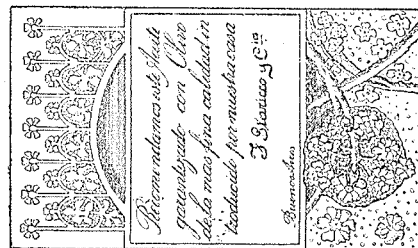 Recomendamos este
garantizado con Olivo
de la mas fina calidad in
troducido por nuestra casa
y Cia
Buenos Aires